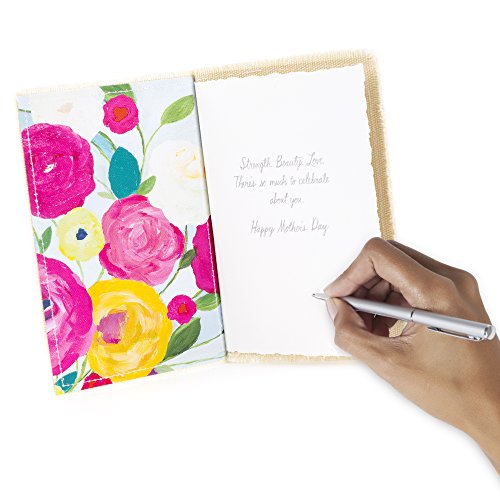 Strength. Beauty. Love.
There's so much to celebrate
about you.
Happy Mother's Day.